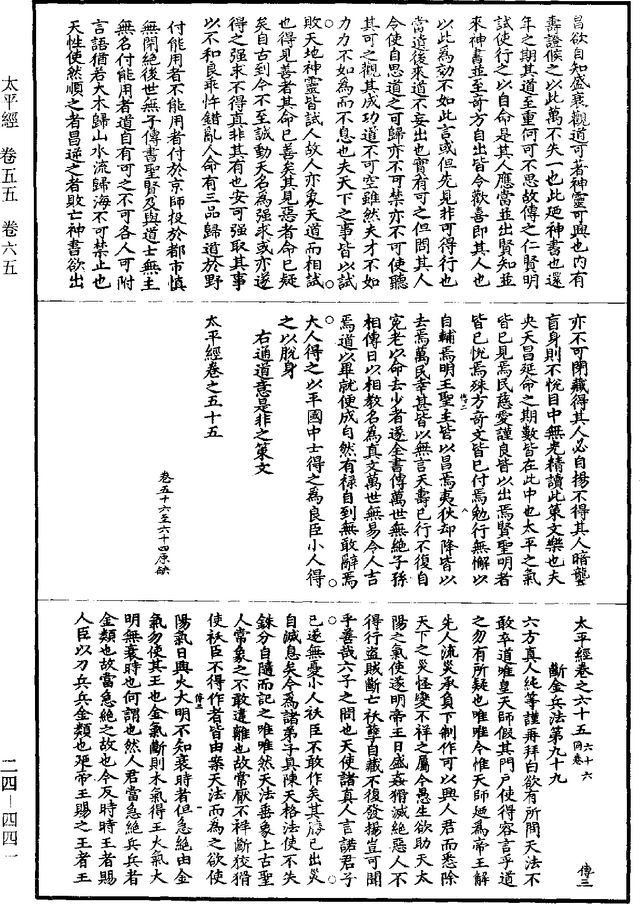 太平經　卷五五　卷六五
二四—四四一
昌欲自知盛衰觀道可著神靈可興也內有
壽證候之以此萬不失一也此廼神書也還
年之期其道至重何可不思故傳之仁賢明
試使行之以自命是其人應當並出賢知並
來神書並至奇方自出皆令歡喜即其人也
以此為効不如此言或但先見非可得行也
當道後來道不妄出也實有可之但問其人
令使自思道之可歸亦不可禁亦不可使聽
其可之觀其成功道不可空雖然夫才不如
力力不如為而不息也夫天下之事皆以試
敗天地神靈皆試人故人亦象天道而相試
也得見善者其命已善矣其見惡者命已疑
矣自古到今不至誠動天名為強求或亦遂
得之強求不得真非其有也安可強取其事
以不和良乖忤錯亂人命有三品歸道於野
付能用者不能用者付於京師投於都市慎
無閉絕後世無子傳書聖賢及與道士無主
無名付能用者道自有可之不可各人可附
言語猶若大木歸山水流歸海不可禁止也
天性使然順之者昌逆之者敗亡神書欲出
亦不可閉藏得其人必自揚不得其人暗聾
盲身則不悅目中無光精讀此策文樂也夫
央天昌延命之期數皆在此中也太平之氣
皆已見焉民慈愛謹良皆以出焉賢聖明者
皆已悅焉殊方奇文皆已付焉勉行無懈以
自輔焉明王聖主皆以昌焉夷狄却降皆以
去焉萬民幸甚皆以無言天壽已行不復自
冤老以命去少者遂全書傳萬世無絕子孫
相傳日以相教名為真文萬世無易令人吉
焉道以畢就便成自然有祿自到無敢辭焉
大人得之以平國中士得之為良臣小人得
之以脫身
右通道意是非之策文
太平經卷之五十五
卷五十六至六十四原缺
太平經卷之六十五 六十六同卷
傅三
斷金兵法第九十九
六方真人純等謹再拜白欲有所問天法不
敢卒道唯皇天師假其門戶使得容言乎道
之勿有所疑也唯唯今惟天師廼為帝王解
先人流災承負下制作可以興人君而悉除
天下之災怪變不祥之屬今愚生欲助天太
陽之氣使遂明帝王日盛姦猾滅絕惡人不
得行盜賊斷亡袄孽自藏不復發揚豈可聞
乎善哉六子之問也天使諸真人言諾君子
已遂無憂小人袄臣不敢作矣其<br>已出災
自滅息矣今為諸弟子具陳天格法使不失
銖分自隨而記之唯唯然天法垂象上古聖
人常象之不敢違離也故常厭不祥斷狡猾
使袄臣不得作者皆由案天法而為之欲使
陽氣日興火大明不知衰時者但急絕由金
氣勿使其王也金氣斷則木氣得王火氣大
明無衰時也何謂也然人君當急絕兵兵者
金類也故當急絕之故也今反時時王者賜
人臣以刀兵兵金類也廼帝王賜之王者王